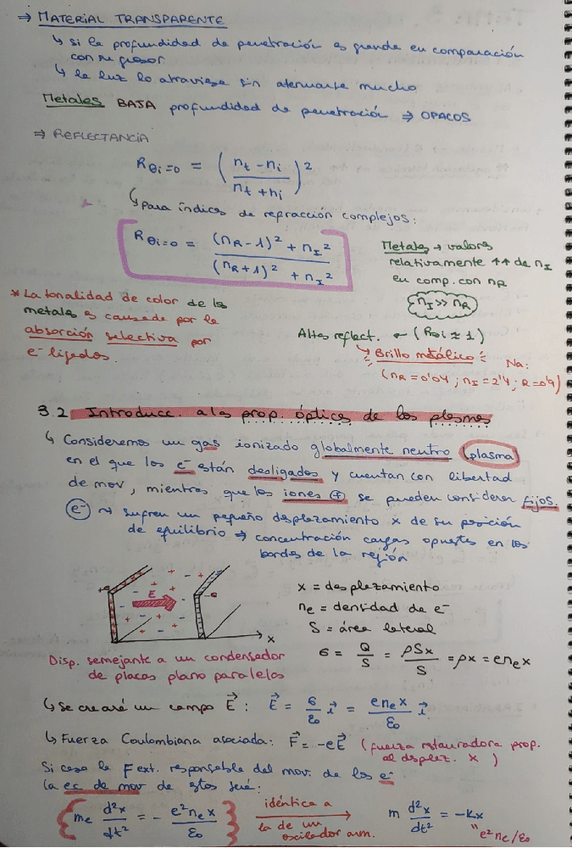 ⇒ MATERIAL TRANSPARENTE
↳ si la profundidad de penetración es grande en comparación
con su grosor
↳ la luz lo atraviesa sin atenuarse mucho
Metales BAJA profundidad de penetración ⇒ OPACOS
⇒ REFLECTANCIA
R_{θi=0} = ((n_t - n_i)/(n_t + n_i))²
↳ para índices de refracción complejos:
R_{θi=0} = ((n_R - 1)² + n_I²)/((n_R + 1)² + n_I²)
Metales → valores
relativamente ↑↑ de n_I
en comp. con n_R
n_I >> n_R
* La tonalidad de color de los
metales es causada por la
absorción selectiva por
e⁻ ligados.
Altas reflect. ~ (R_{θi} ≈ 1)
↳ Brillo metálico
Na:
(n_R = 0'04 ; n_I = 2'4 ; R = 0'9)
3.2 Introducc. a las prop. ópticas de los plasmas
↳ Consideremos un gas ionizado globalmente neutro (plasma)
en el que los e⁻ están desligados y cuentan con libertad
de mov, mientras que los iones ⊕ se pueden considerar fijos.
e⁻ ⇝ sufren un pequeño desplazamiento x de su posición
de equilibrio ⇒ concentración cargas opuestas en los
bordes de la región
E
x
x = desplazamiento
n_e = densidad de e⁻
S = área lateral
σ = Q/S = ρSx/S = ρx = e n_e x
Disp. semejante a un condensador
de placas plano paralelas
↳ Se creará un campo E⃗ : E⃗ = σ/ε₀ i⃗ = e n_e x/ε₀ i⃗
↳ Fuerza Coulombiana asociada: F⃗ = -eE⃗ (fuerza restauradora prop.
al desplaz. x)
Si cesa la F ext. responsable del mov. de los e⁻
la ec de mov de estos será:
m_e d²x/dt² = - e² n_e x/ε₀
idéntica a
la de un
oscilador arm.
m d²x/dt² = -kx
" e² n_e/ε₀